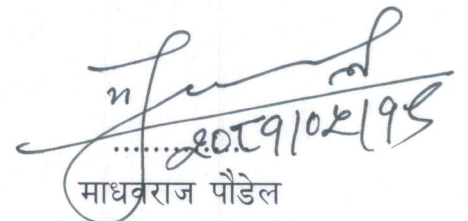 २०८१/०५/१९
माधवराज पौडेल